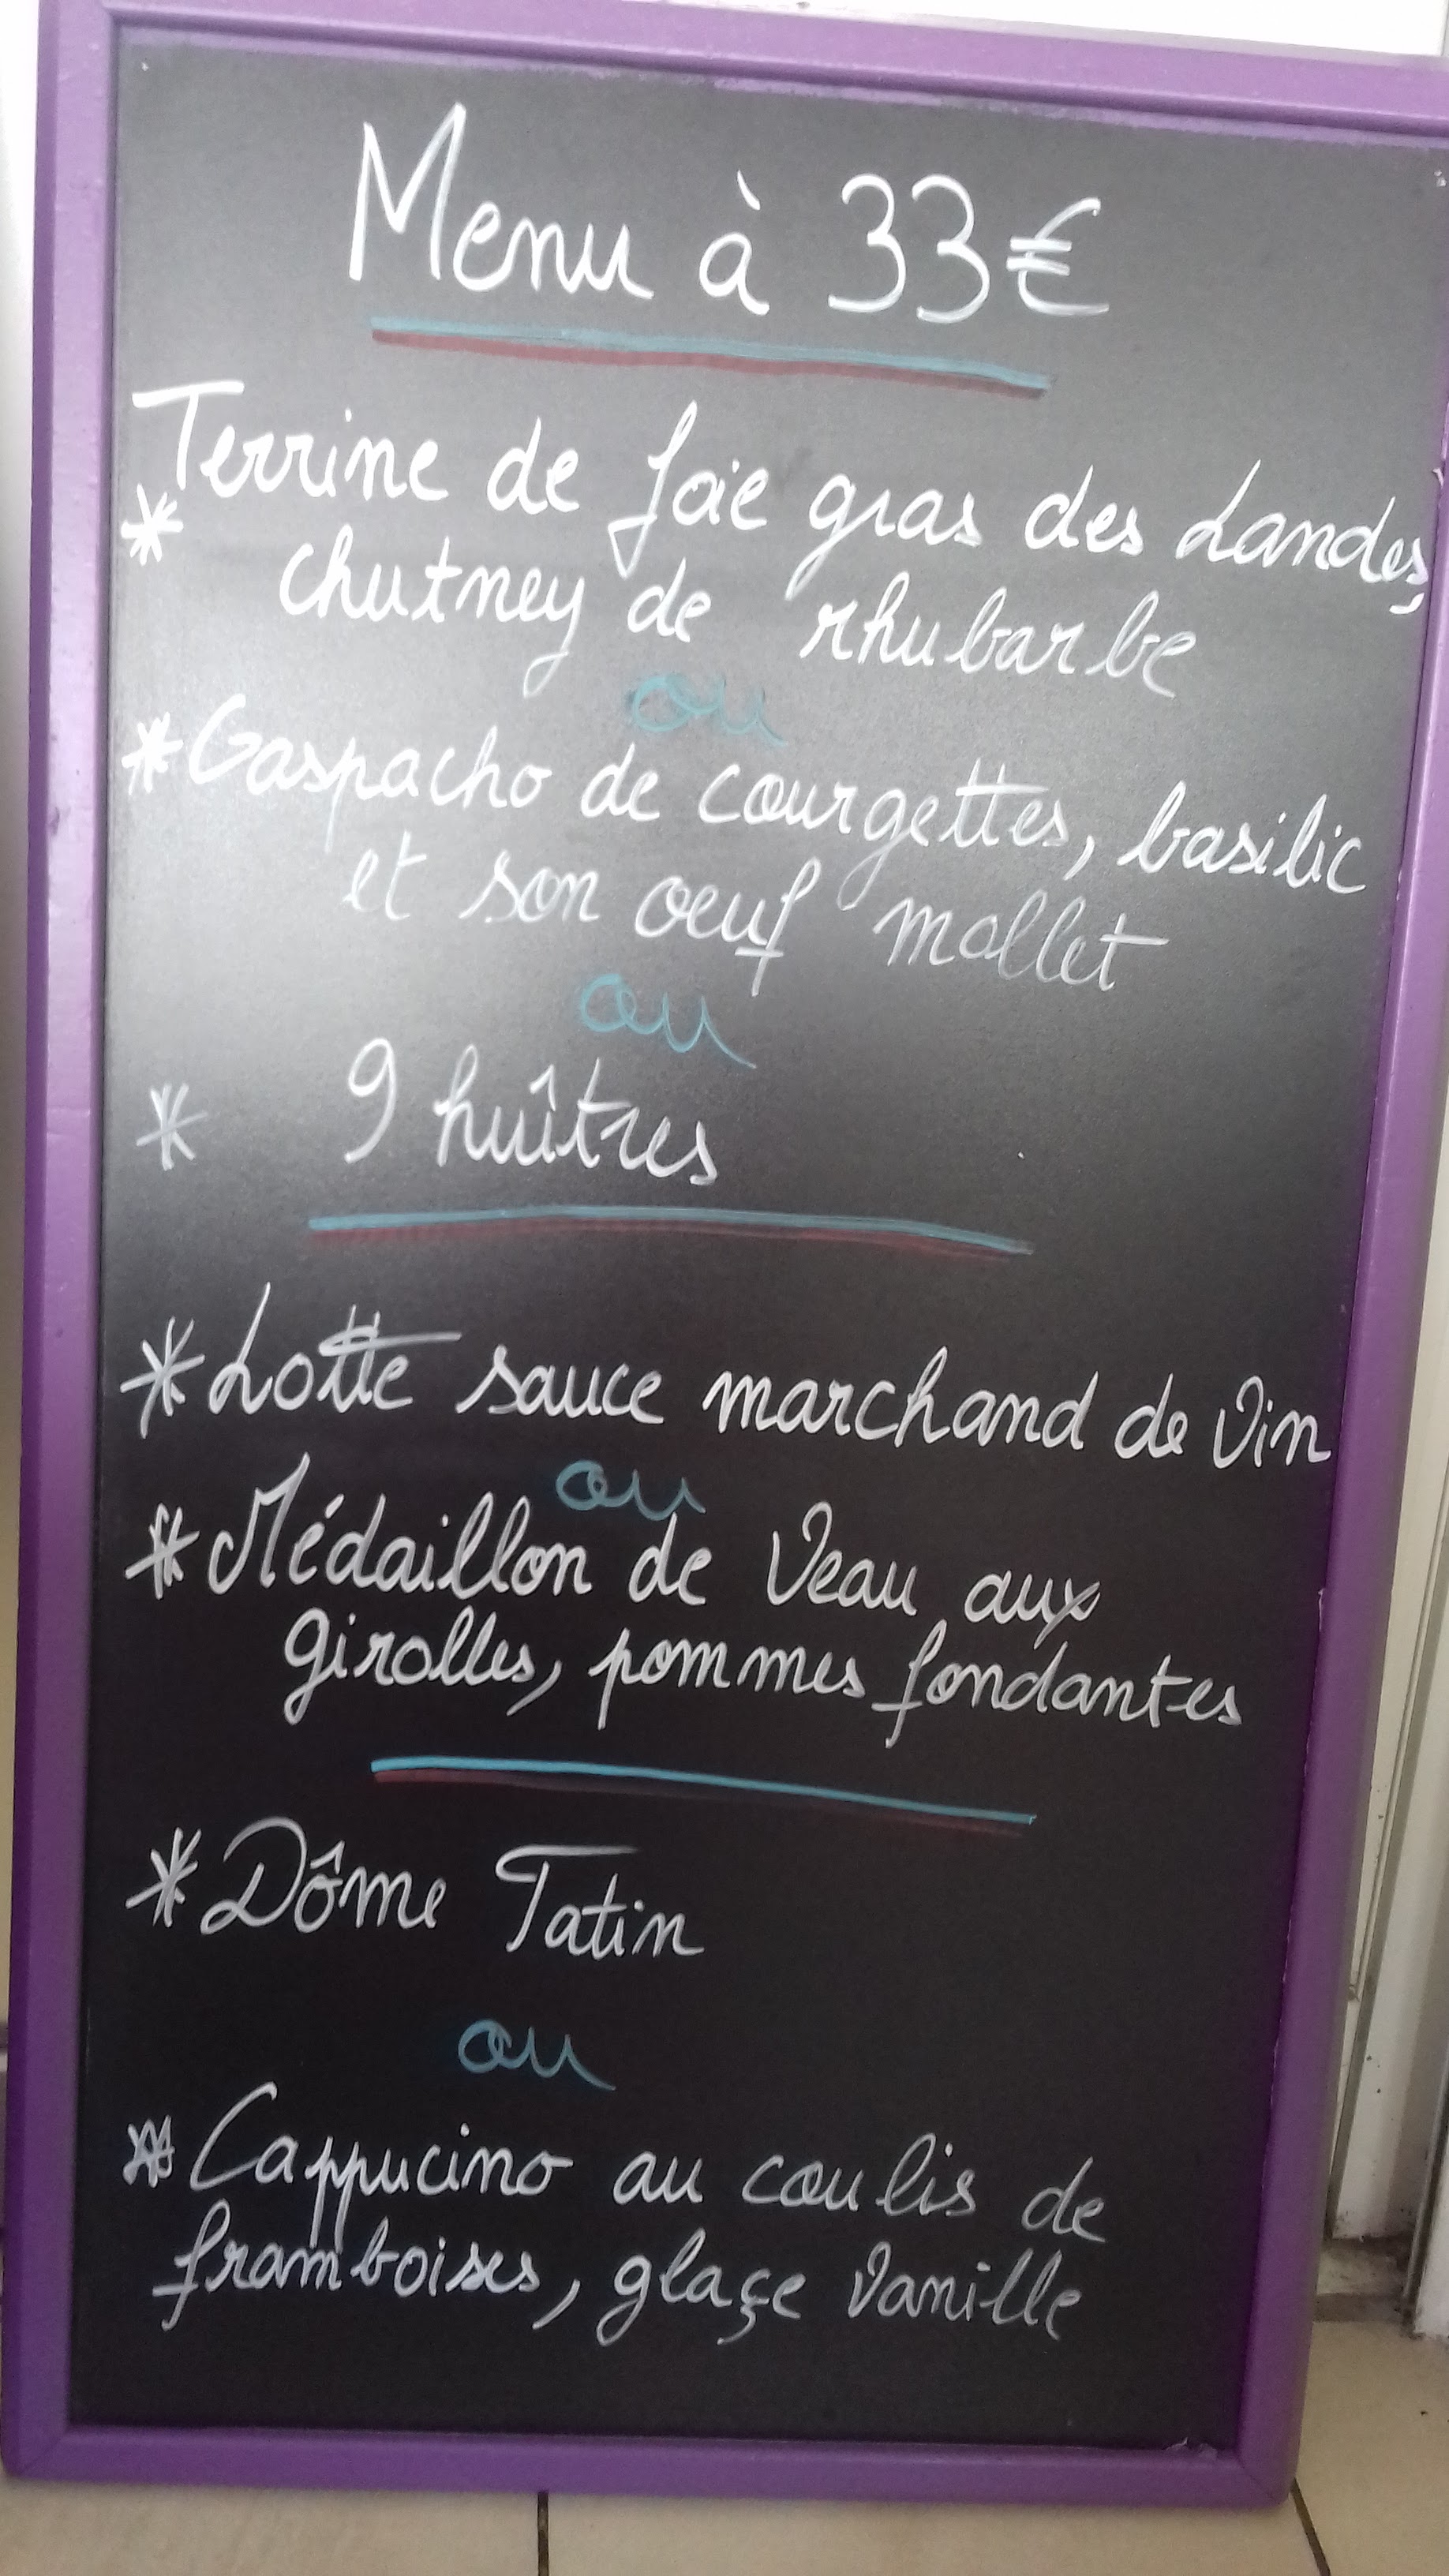 Menu à 33€
Terrine de foie gras des Landes,
* chutney de rhubarbe
ou
* Gaspacho de courgettes, basilic
et son oeuf mollet
ou
* 9 huîtres
* Lotte sauce marchand de Vin
ou
* Médaillon de Veau aux
girolles, pommes fondantes
* Dôme Tatin
ou
* Cappucino au coulis de
framboises, glaçe Vanille